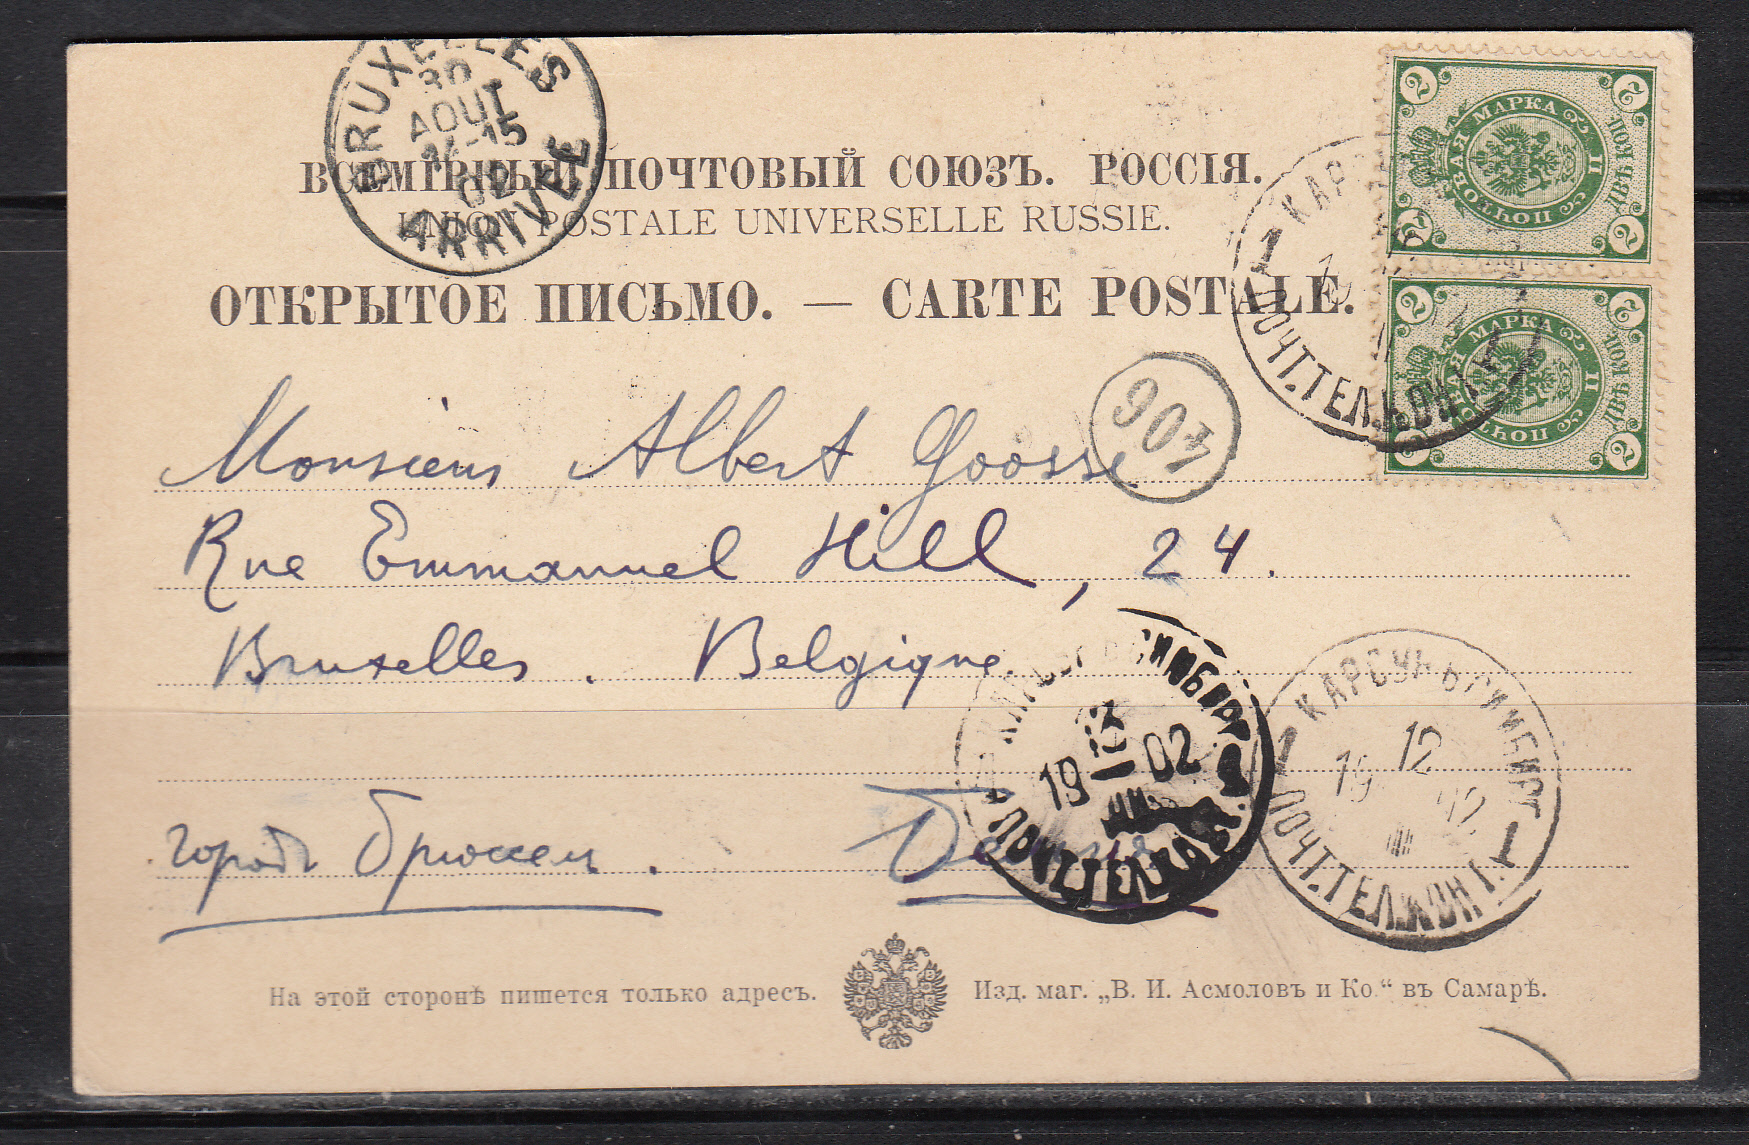 BRUXELLES
30
AOUT
14-15
02
ARRIVÉE
ВСЕМІРНЫЙ ПОЧТОВЫЙ СОЮЗЪ. РОССІЯ.
UNION POSTALE UNIVERSELLE RUSSIE.
ОТКРЫТОЕ ПИСЬМО. — CARTE POSTALE.
2 2
ПОЧТОВАЯ МАРКА
ДВѢ КОП.
II
2 2
2 2
ПОЧТОВАЯ МАРКА
ДВѢ КОП.
II
2 2
1 КАРС
ПОЧТ.ТЕЛ.КОН
907
Monsieur Albert Goosse
Rue Emmanuel Hill, 24.
Bruxelles. Belgique
СИМБИРГ
19 02
ПОЧТ.ТЕЛ.КОН.
1 КАРСУНЪ СИМБИРГ 1
12
19 02
ПОЧТ.ТЕЛ.КОН
городъ Брюссель.
На этой сторонѣ пишется только адресъ.
Изд. маг. „В. И. Асмоловъ и Ко.“ въ Самарѣ.